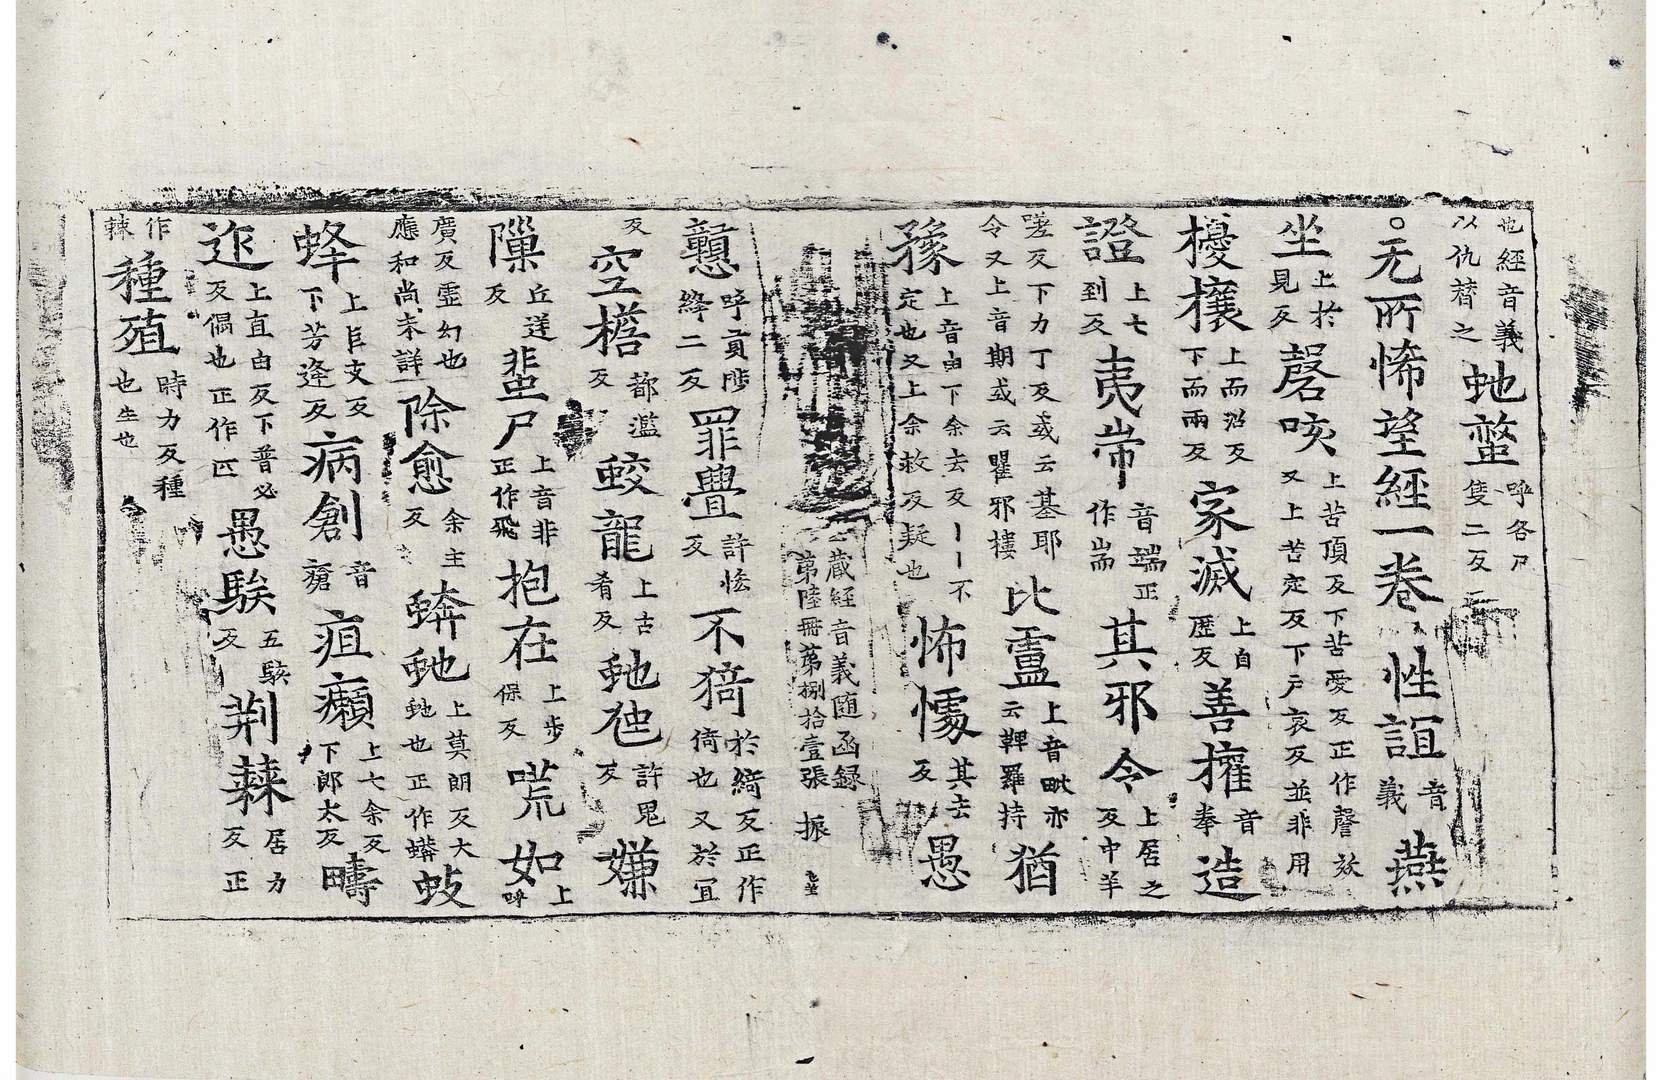 也經音義以仇䅩之虵螫呼各尸隻二反
○无所怖望經一卷性誼音義燕
坐上於見反磬咳上苦頂反下苦愛反正作謦欬又上苦定反下戸哀反並非用
擾攘上而沼反下而兩反家滅上自歷反善㩲音拳造
證上七到反夷耑音端正作耑其邪令上居之反中羊
嗟反下力丁反或云基耶令又上音期或云瞿邪摟比盧上音毗亦云鞞羅持猶
豫上音由下余去反丨丨不定也又上余救反疑也怖懅其去反愚
藏經音義随函録
第陸冊第捌拾壹張 振
戇呼貢陟絳二反罪舋許恡反不猗於綺反正作倚也又於宜
反空檐都濫反蛟龍上古肴反虵虺許鬼反嫌
隟丘逆反蜚尸上音非正作飛抱在上步保反㖼如上呼
廣反虛幻也應和尚未詳除愈余主反蟒虵上莫朗反大虵也正作蟒蚑
蜂上巨支反下芳逢反病創音瘡疽癩上七余反下郎太反疇
迩上直由反下普必反儔也正作匹愚騃五騃反荆棘居力反正
作棘種殖時力反種也生也